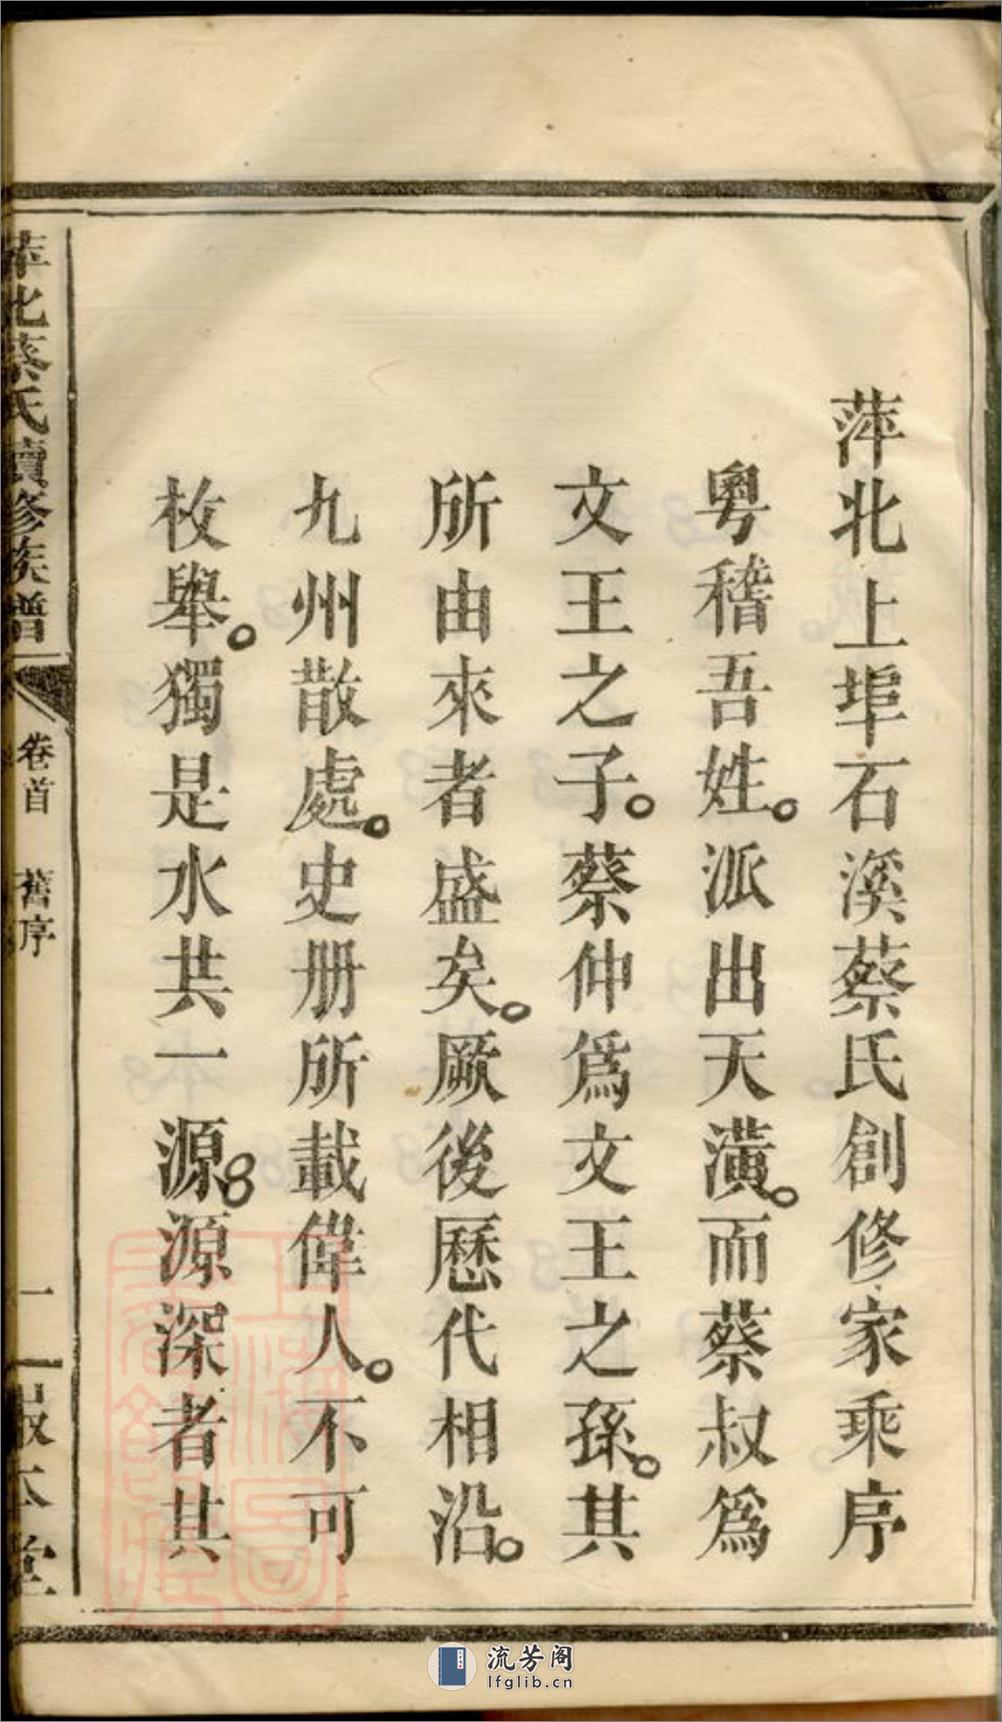 萍北上埠石溪蔡氏創修家乘序
粵稽吾姓。派出天潢。而蔡叔爲
文王之子。蔡仲爲文王之孫。其
所由來者盛矣。厥後歷代相沿。
九州散處。史册所載偉人。不可
枚舉。獨是水共一源。源深者其
萍北蔡氏續修族譜
卷首 舊序
一
本堂
流芳阁
lfglib.cn